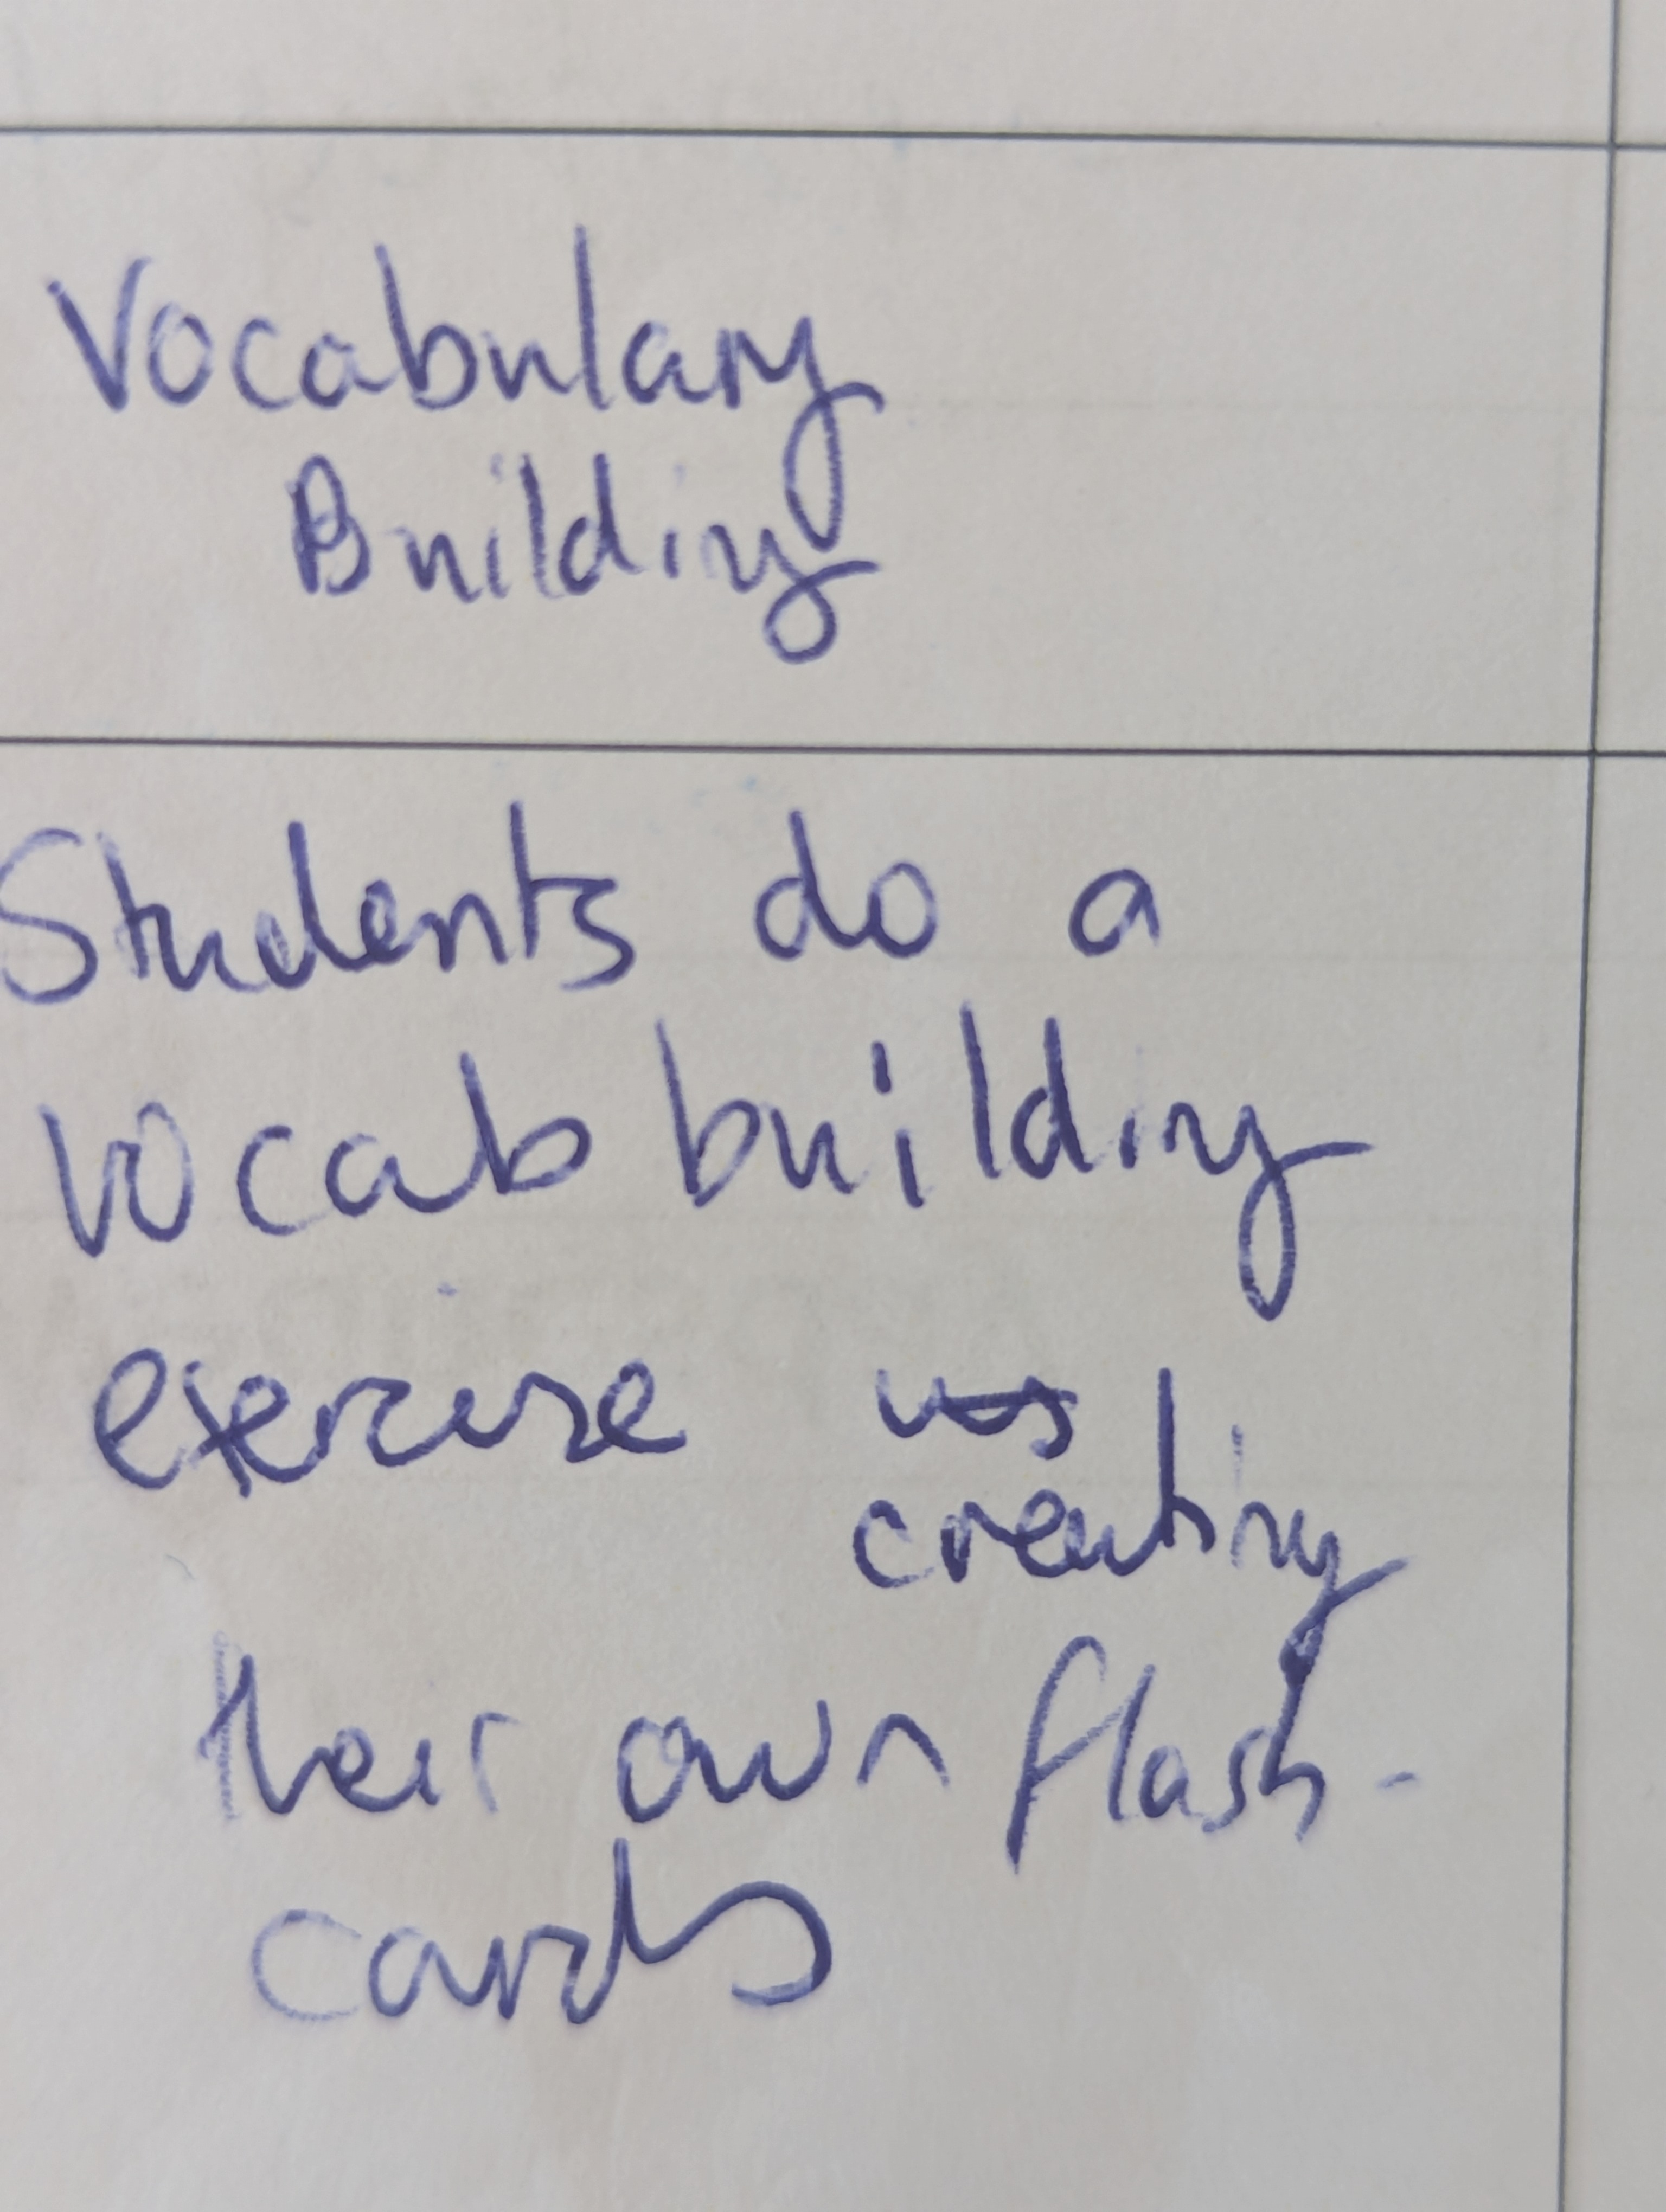 Vocabulary
Building
Students do a
vocab building
exercise
creating
their own flash-
cards